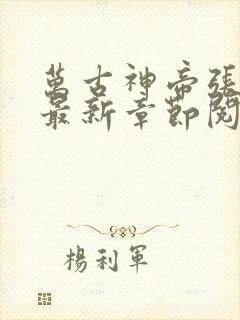 萬古神帝張
最新章節閱
楊利軍